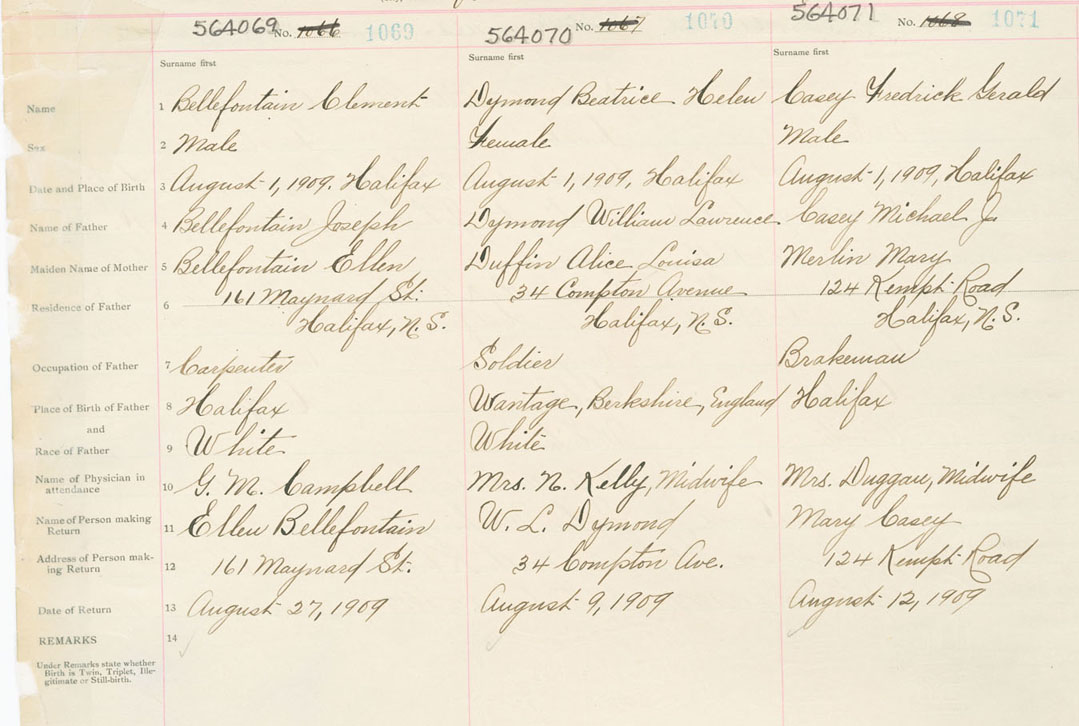 564069 No. 1066 1069 564070 No. 1067 1070 564071 No. 1068 1071
Surname first Surname first Surname first
Name 1 Bellefontain Clement Dymond Beatrice Helen Casey Fredrick Gerald
Sex 2 Male Female Male
Date and Place of Birth 3 August 1, 1909. Halifax August 1, 1909, Halifax August 1, 1909, Halifax
Name of Father 4 Bellefontain Joseph Dymond William Lawrence Casey Michael J.
Maiden Name of Mother 5 Bellefontain Ellen Duffin Alice Louisa Merlin Mary
Residence of Father 6 161 Maynard St. 34 Compton Avenue 124 Kempt Road
Halifax, N.S. Halifax, N.S. Halifax, N.S.
Occupation of Father 7 Carpenter Soldier Brakeman
Place of Birth of Father 8 Halifax Wantage, Berkshire, England Halifax
and
Race of Father 9 White White
Name of Physician in
attendance 10 G. M. Campbell Mrs. N. Kelly, Midwife Mrs. Duggan, Midwife
Name of Person making
Return 11 Ellen Bellefontain W. L. Dymond Mary Casey
Address of Person mak-
ing Return 12 161 Maynard St. 34 Compton Ave. 124 Kempt Road
Date of Return 13 August 27, 1909 August 9, 1909 August 12, 1909
REMARKS 14
Under Remarks state whether
Birth is Twin, Triplet, Ille-
gitimate or Still-birth.